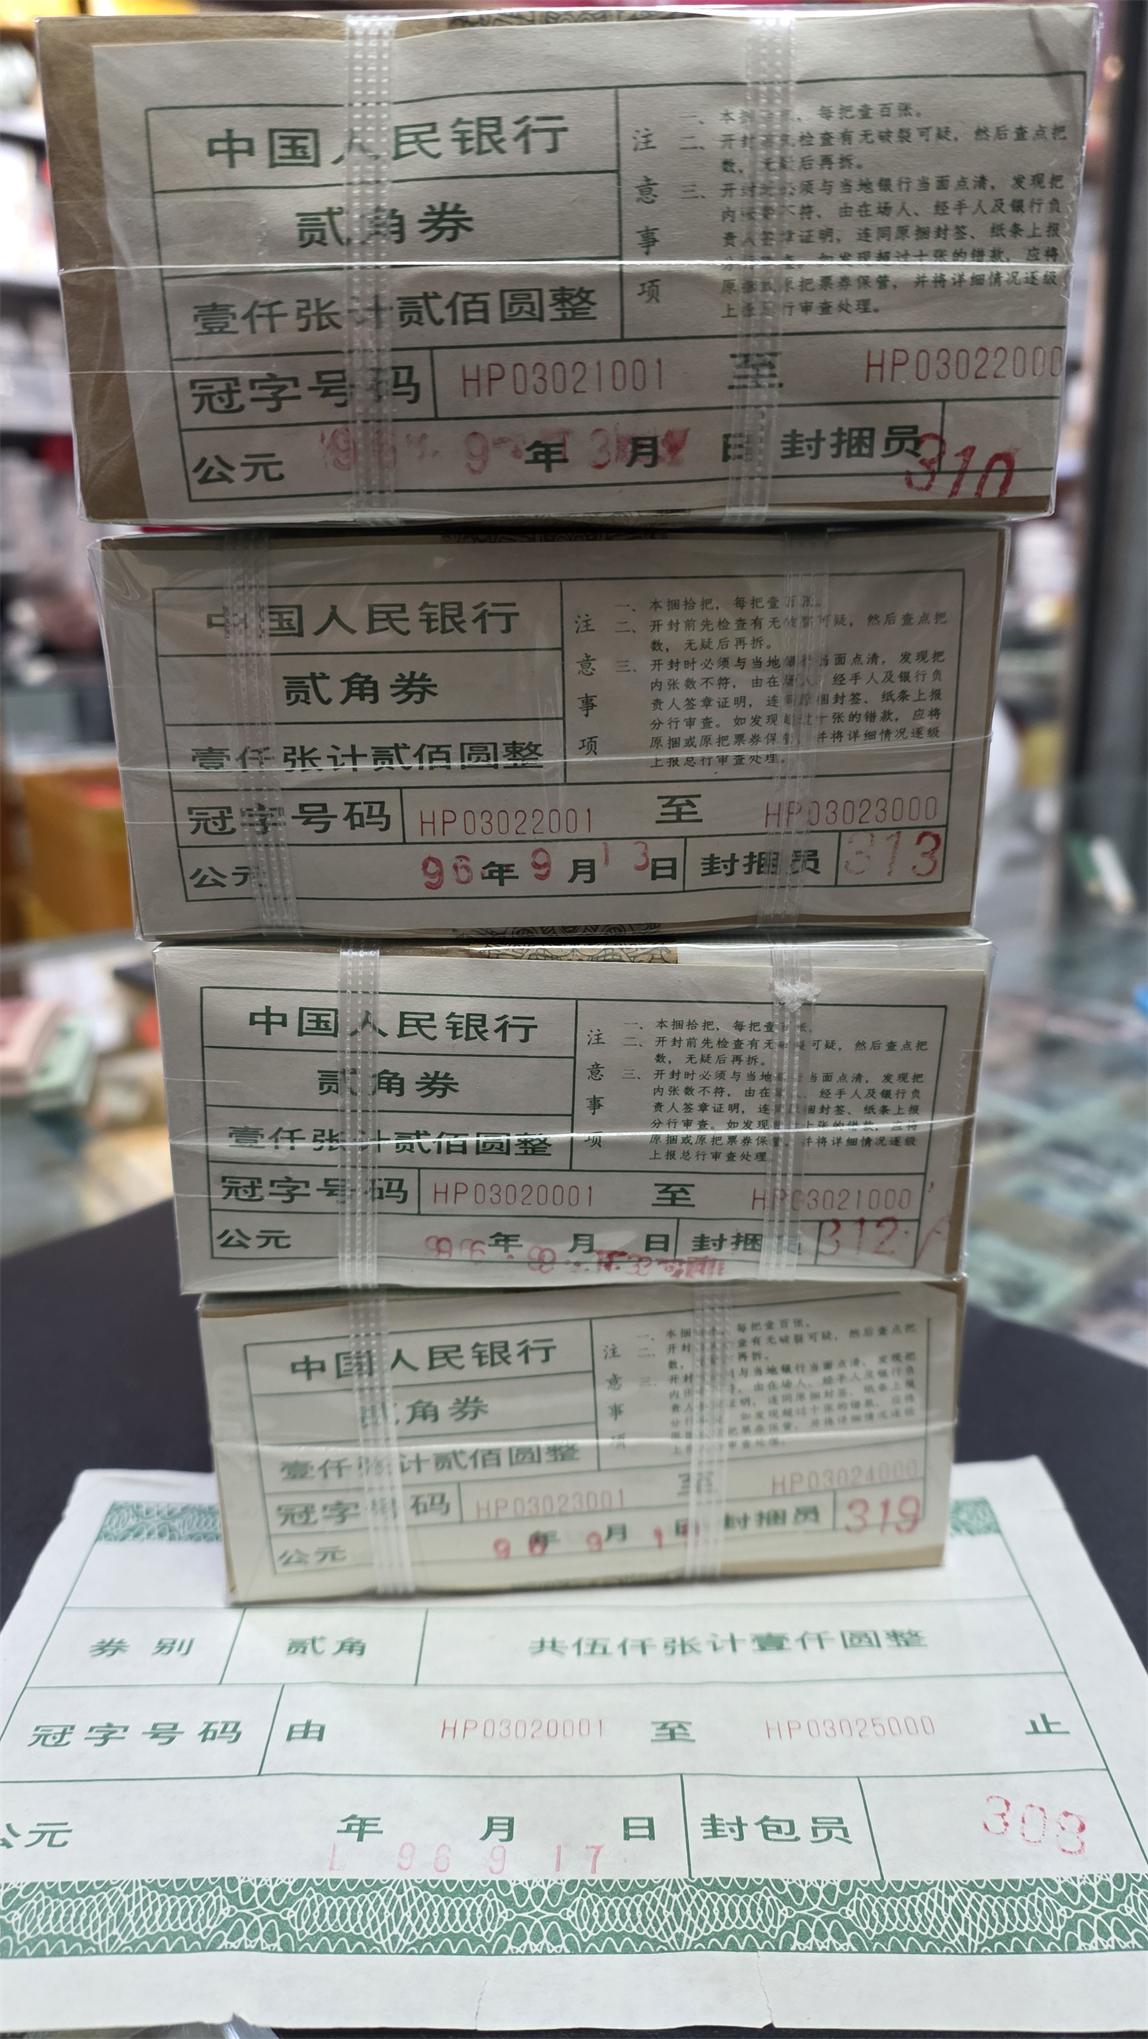 中国人民银行
贰角券
壹仟张计贰佰圆整
注意事项
每把壹百张。
二、开封 检查有无破裂可疑，然后查点把
数，无疑后再拆。
三、开封 须与当地银行当面点清，发现把
内 不符，由在场人、经手人及银行负
责人签章证明，连同原捆封签、纸条上报
如发现超过十张的错款，应将
原捆或原把票券保管，并将详细情况逐级
上报总行审查处理。
冠字号码 HP03021001 至 HP03022000
公元 年 月 日 封捆员 310
中国人民银行
贰角券
壹仟张计贰佰圆整
注意事项
一、本捆拾把，每把壹百张。
二、开封前先检查有无破裂可疑，然后查点把
数，无疑后再拆。
三、开封时必须与当地银行当面点清，发现把
内张数不符，由在场人、经手人及银行负
责人签章证明，连同原捆封签、纸条上报
分行审查。如发现超过十张的错款，应将
原捆或原把票券保管，并将详细情况逐级
上报总行审查处理。
冠字号码 HP03022001 至 HP03023000
公元 96年9月13日 封捆员 313
中国人民银行
贰角券
壹仟张计贰佰圆整
注意事项
一、本捆拾把，每把壹百张。
二、开封前先检查有无破裂可疑，然后查点把
数，无疑后再拆。
三、开封时必须与当地银行当面点清，发现把
内张数不符，由在场人、经手人及银行负
责人签章证明，连同原捆封签、纸条上报
分行审查。如发现超过十张的错款，应将
原捆或原把票券保管，并将详细情况逐级
上报总行审查处理。
冠字号码 HP03020001 至 HP03021000
公元 年 月 日 封捆员 312
中国人民银行
贰角券
壹仟张计贰佰圆整
注意事项
一、本捆 每把壹百张。
二、开封 查有无破裂可疑，然后查点把
数， 再拆。
三、 与当地银行当面点清，发现把
内张 由在场人、经手人及银行负
责人 证明，连同原捆封签、纸条上报
分行 如发现超过十张的错款，应将
把票券保管，并将详细情况逐级
上报 审查处理。
冠字号码 HP03023001 至 HP03024000
公元 96年 9月 日 封捆员 319
券别 贰角 共伍仟张计壹仟圆整
冠字号码 由 HP03020001 至 HP03025000 止
公元 年 月 日 封包员 308
96 9 17